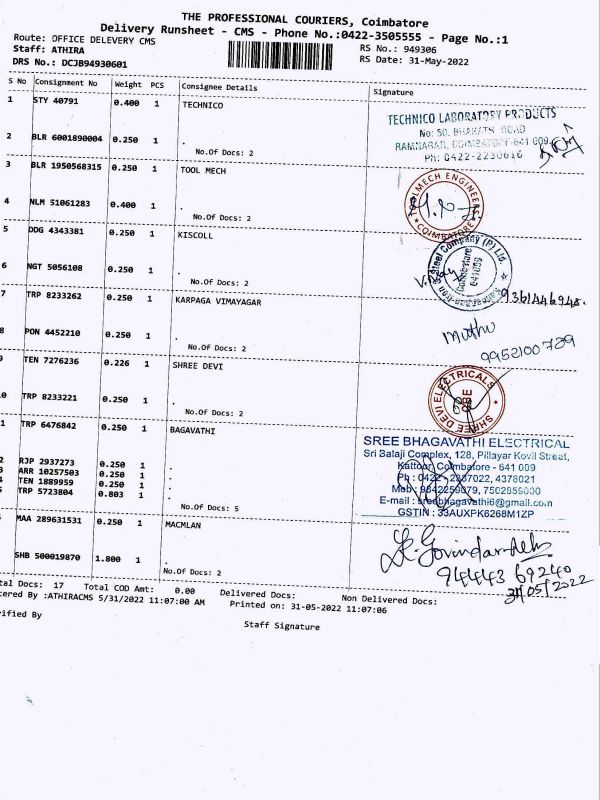 THE PROFESSIONAL COURIERS, Coimbatore
Delivery Runsheet - CMS - Phone No.:0422-3505555 - Page No.:1
Route: OFFICE DELEVERY CMS
RS No.: 949306
Staff: ATHIRA
RS Date: 31-May-2022
DRS No.: DCJB94930601
S No Consignment No Weight PCS Consignee Details Signature
1 STY 40791 0.400 1 TECHNICO
TECHNICO LABORATORY PRODUCTS
No: 50, BHARATHI ROAD
RAMNAGAR, COIMBATORE-641 009
Ph: 0422-2230616
2 BLR 6001890004 0.250 1 .
No.Of Docs: 2
3 BLR 1950568315 0.250 1 TOOL MECH
TOOLMECH ENGINEERS
COIMBATORE
4 NLM 51061283 0.400 1 .
No.Of Docs: 2
5 DDG 4343381 0.250 1 KISCOLL
Steel Company (P) Ltd.
Coimbatore
641009
9361446948.
6 NGT 5056108 0.250 1 .
No.Of Docs: 2
7 TRP 8233262 0.250 1 KARPAGA VIMAYAGAR
Muthu
9952100789
8 PON 4452210 0.250 1 .
No.Of Docs: 2
9 TEN 7276236 0.226 1 SHREE DEVI
SHREE DEVI ELECTRICALS
CBE
0 TRP 8233221 0.250 1 .
No.Of Docs: 2
1 TRP 6476842 0.250 1 BAGAVATHI
SREE BHAGAVATHI ELECTRICAL
Sri Balaji Complex, 128, Pillayar Kovil Street,
Kattoor, Coimbatore - 641 009
Ph : 0422-2237022, 4378021
Mob : 9842259079, 7502859000
E-mail : sreebhagavathi6@gmail.com
GSTIN : 33AUXPK6268M1ZP
2 RJP 2937273 0.250 1 .
3 ARR 10257503 0.250 1 .
TEN 1889959 0.250 1 .
TRP 5723804 0.803 1 .
No.Of Docs: 5
MAA 289631531 0.250 1 MACMLAN
94443 69240
31/05/2022
SHB 500019870 1.800 1 .
No.Of Docs: 2
tal Docs: 17 Total COD Amt: 0.00 Delivered Docs: Non Delivered Docs:
tered By :ATHIRACMS 5/31/2022 11:07:00 AM Printed on: 31-05-2022 11:07:06
rified By
Staff Signature